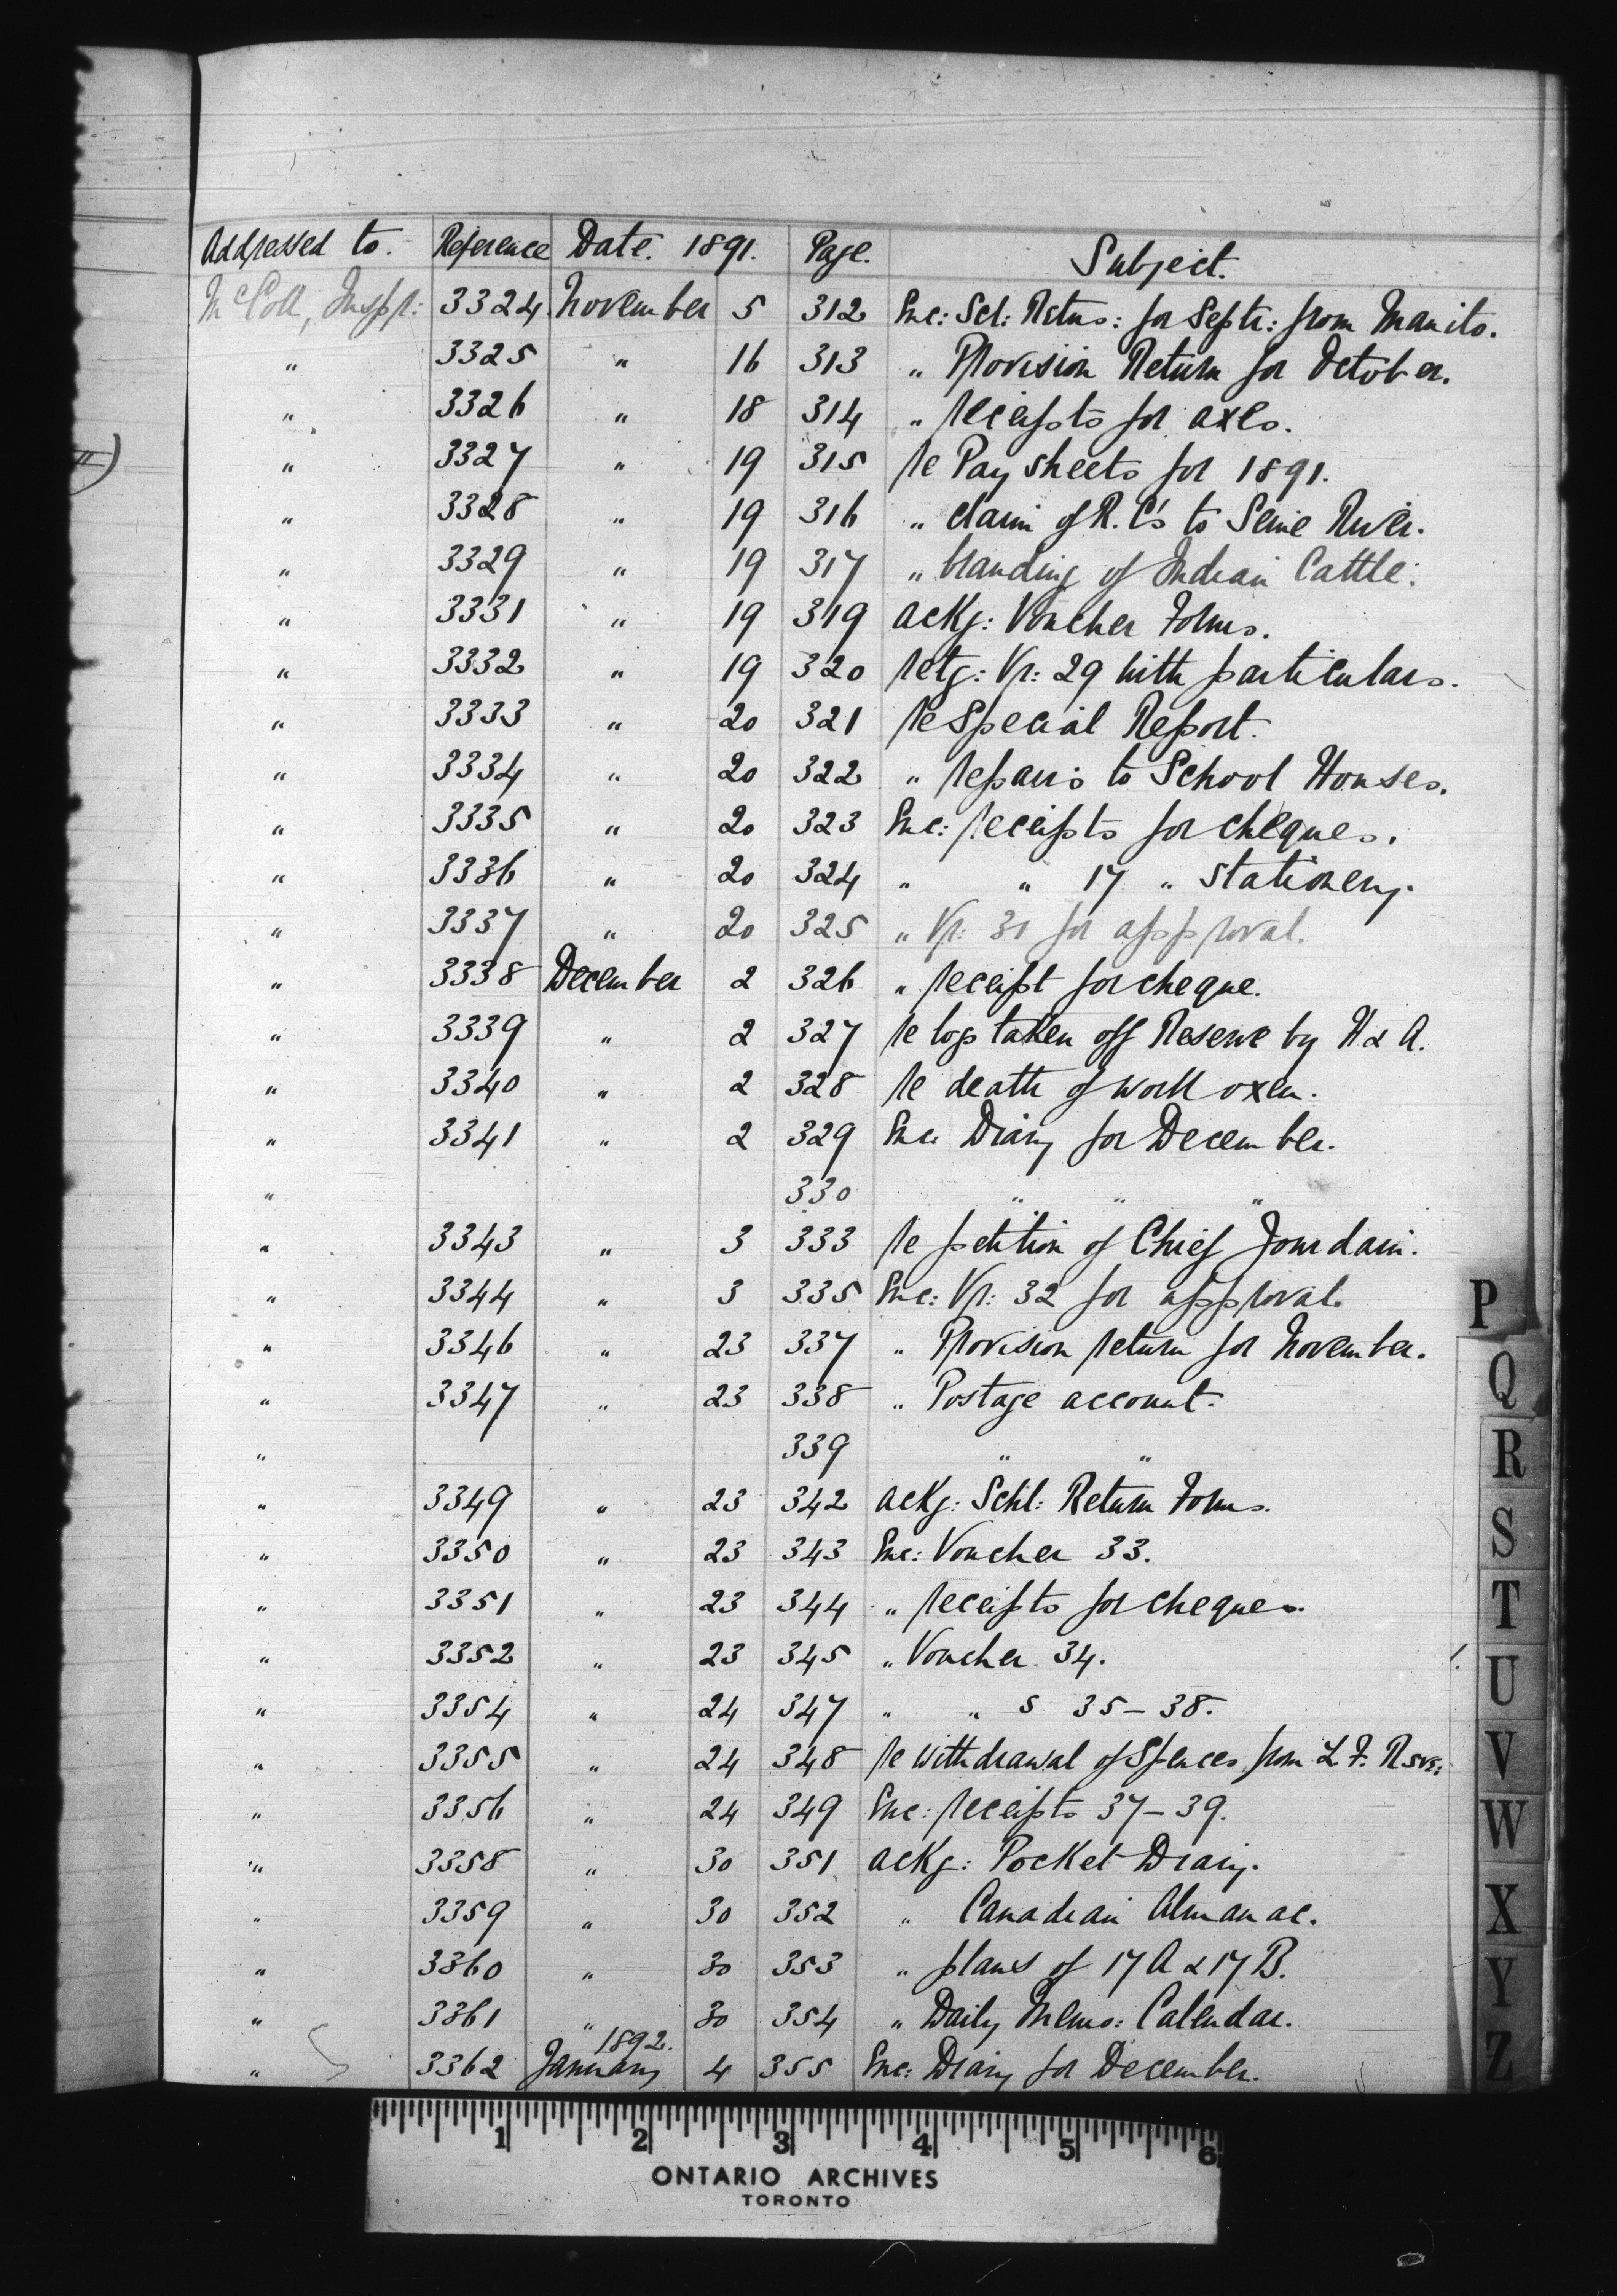 Addressed to. Reference Date. 1891. Page. Subject.
McColl, Inspr: 3324 November 5 312 Enc: Scl: Retns: for Septr: from Manito.
" 3325 " 16 313 " Provision Return for October.
" 3326 " 18 314 " receipts for axes.
" 3327 " 19 315 re Pay sheets for 1891.
" 3328 " 19 316 " claim of R.C's to Seine River.
" 3329 " 19 317 " branding of Indian Cattle.
" 3331 " 19 319 ackg: Voucher Forms.
" 3332 " 19 320 retg: Vr: 29 with particulars.
" 3333 " 20 321 re Special Report.
" 3334 " 20 322 " repairs to School Houses.
" 3335 " 20 323 Enc: receipts for cheques.
" 3336 " 20 324 " " 17 " stationery.
" 3337 " 20 325 " Vr: 31 for approval.
" 3338 December 2 326 " receipt for cheque.
" 3339 " 2 327 re logs taken off Reserve by H & A.
" 3340 " 2 328 re death of work oxen.
" 3341 " 2 329 Enc Diary for December.
" 330 " " "
" 3343 " 3 333 re petition of Chief Jourdain.
" 3344 " 3 335 Enc: Vr: 32 for approval.
" 3346 " 23 337 " Provision return for November.
" 3347 " 23 338 " Postage account.
" 339 " "
" 3349 " 23 342 ackg: Schl: Return Forms.
" 3350 " 23 343 Enc: Voucher 33.
" 3351 " 23 344 " receipts for cheques.
" 3352 " 23 345 " Voucher 34.
" 3354 " 24 347 " " s 35-38.
" 3355 " 24 348 re withdrawal of Spences from L. F. Rsve:
" 3356 " 24 349 Enc: receipts 37-39.
" 3358 " 30 351 ackg: Pocket Diary.
" 3359 " 30 352 " Canadian Almanac.
" 3360 " 30 353 " plans of 17A & 17B.
" 3361 " 30 354 " Daily Memo: Calendar.
1892.
" 3362 January 4 355 Enc: Diary for December.
P
Q
R
S
T
U
V
W
X
Y
Z
1 2 3 4 5 6
ONTARIO ARCHIVES
TORONTO